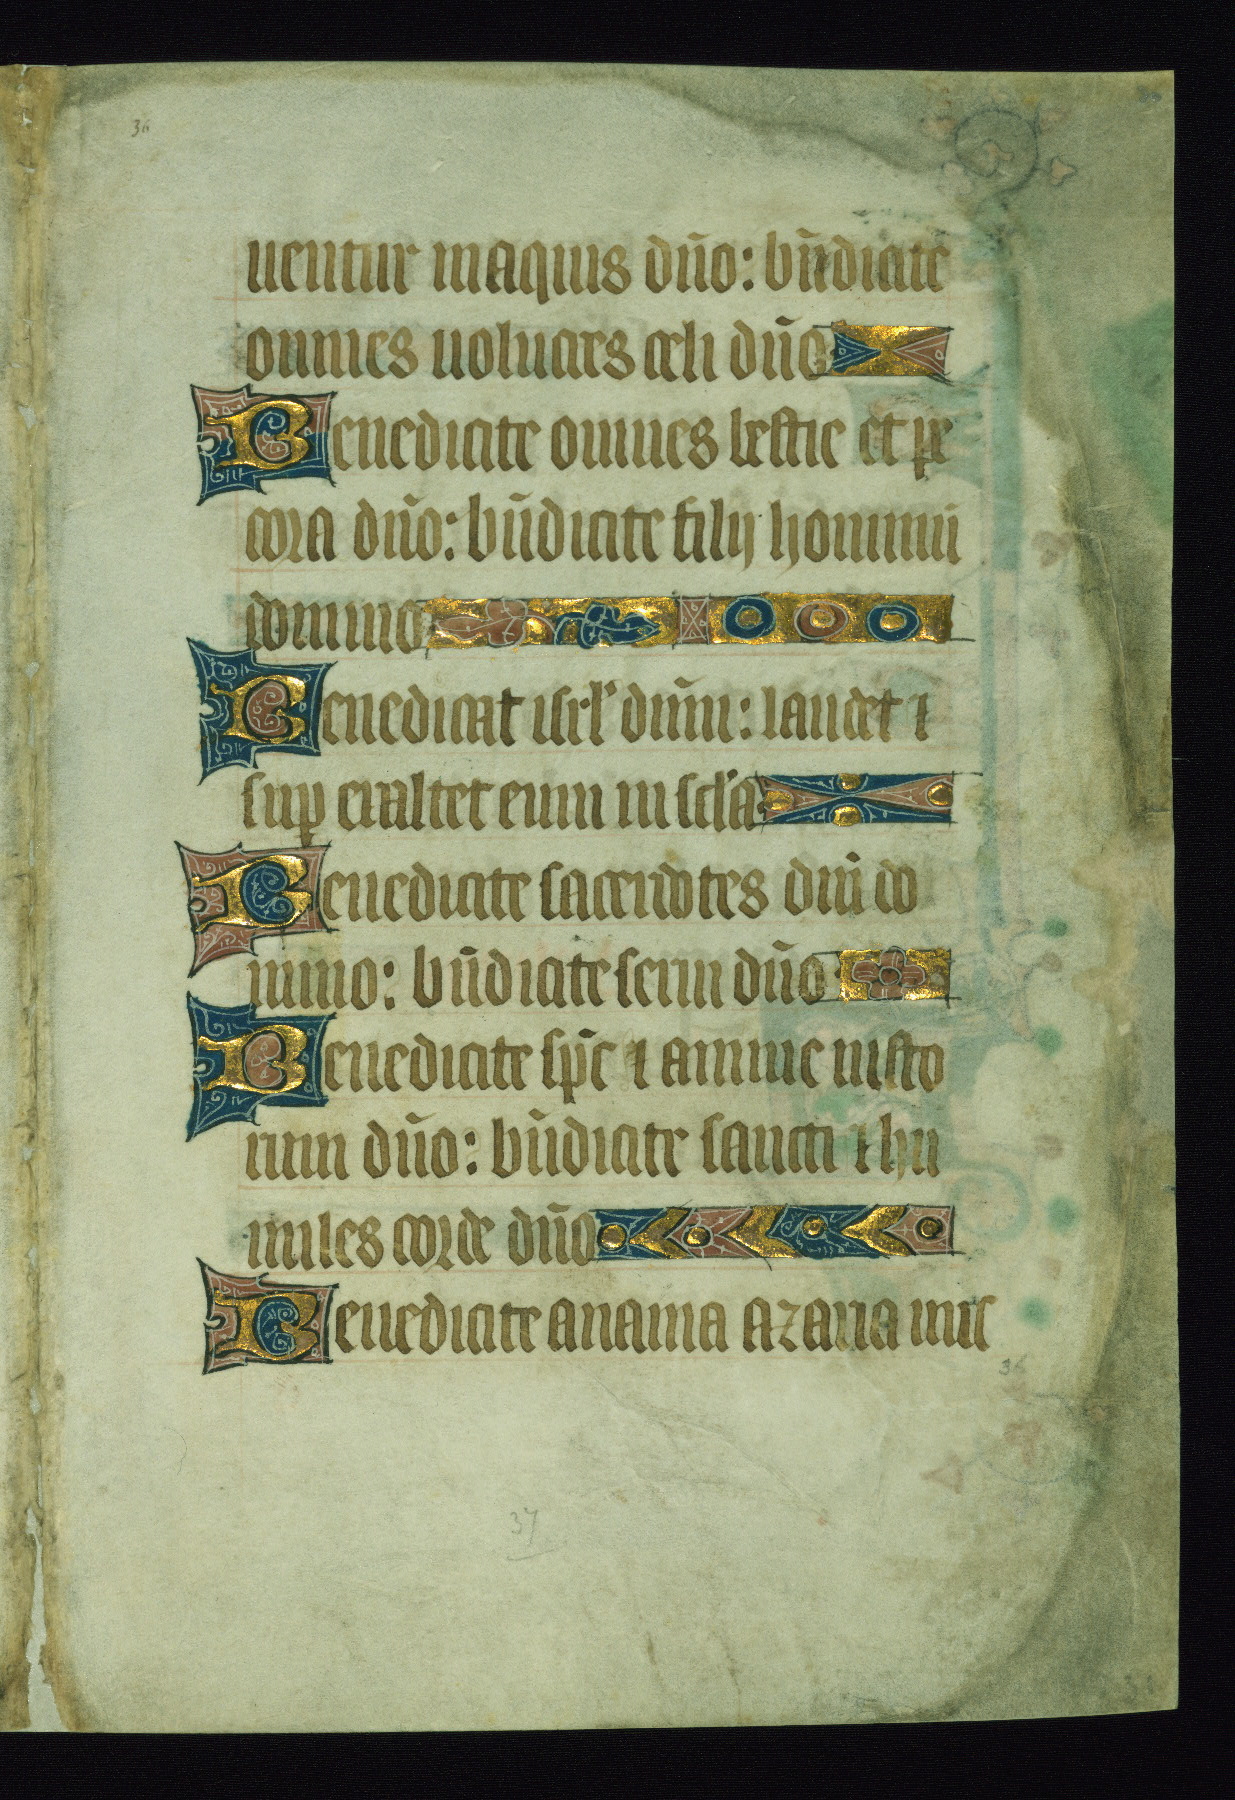 36
uentur in aquis dn̄o: bn̄dicite
omnes uolucres celi dn̄o
Benedicite omnes bestie et pe
cora dn̄o: bn̄dicite filij hominū
domino
Benedicat isrl' dn̄m: laudet ⁊
suꝑ exaltet eum in scl'a
Benedicite sacerdotes dn̄i do
mino: bn̄dicite serui dn̄o
Benedicite sp̄c ⁊ anime iusto
rum dn̄o: bn̄dicite sancti ⁊ hu
miles corde dn̄o
Benedicite anania azaria mis
36
37